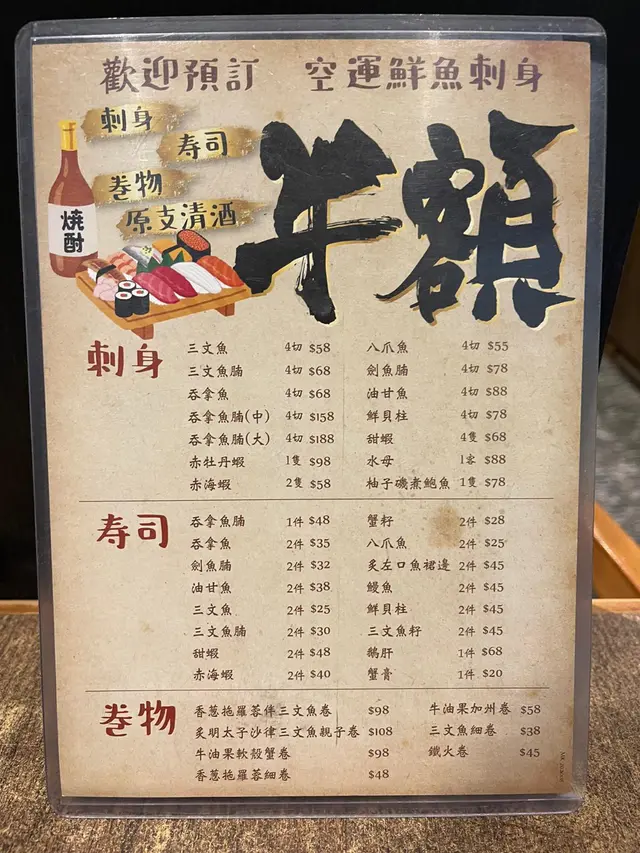 歡迎預訂 空運鮮魚刺身
刺身
寿司
巻物
原支清酒
焼酎
牛額
刺身
三文魚 4切 $58
三文魚腩 4切 $68
吞拿魚 4切 $68
吞拿魚腩(中) 4切 $158
吞拿魚腩(大) 4切 $188
赤牡丹蝦 1隻 $98
赤海蝦 2隻 $58
八爪魚 4切 $55
劍魚腩 4切 $78
油甘魚 4切 $88
鮮貝柱 4切 $78
甜蝦 4隻 $68
水母 1客 $88
柚子磯煮鮑魚 1隻 $78
寿司
吞拿魚腩 1件 $48
吞拿魚 2件 $35
劍魚腩 2件 $32
油甘魚 2件 $38
三文魚 2件 $25
三文魚腩 2件 $30
甜蝦 2件 $48
赤海蝦 2件 $40
蟹籽 2件 $28
八爪魚 2件 $25
炙左口魚裙邊 2件 $45
鰻魚 2件 $45
鮮貝柱 2件 $45
三文魚籽 2件 $45
鵝肝 1件 $68
蟹膏 1件 $20
巻物
香蔥拖羅蓉伴三文魚卷 $98
炙明太子沙律三文魚親子卷 $108
牛油果軟殼蟹卷 $98
香蔥拖羅蓉細卷 $48
牛油果加州卷 $58
三文魚細卷 $38
鐵火卷 $45